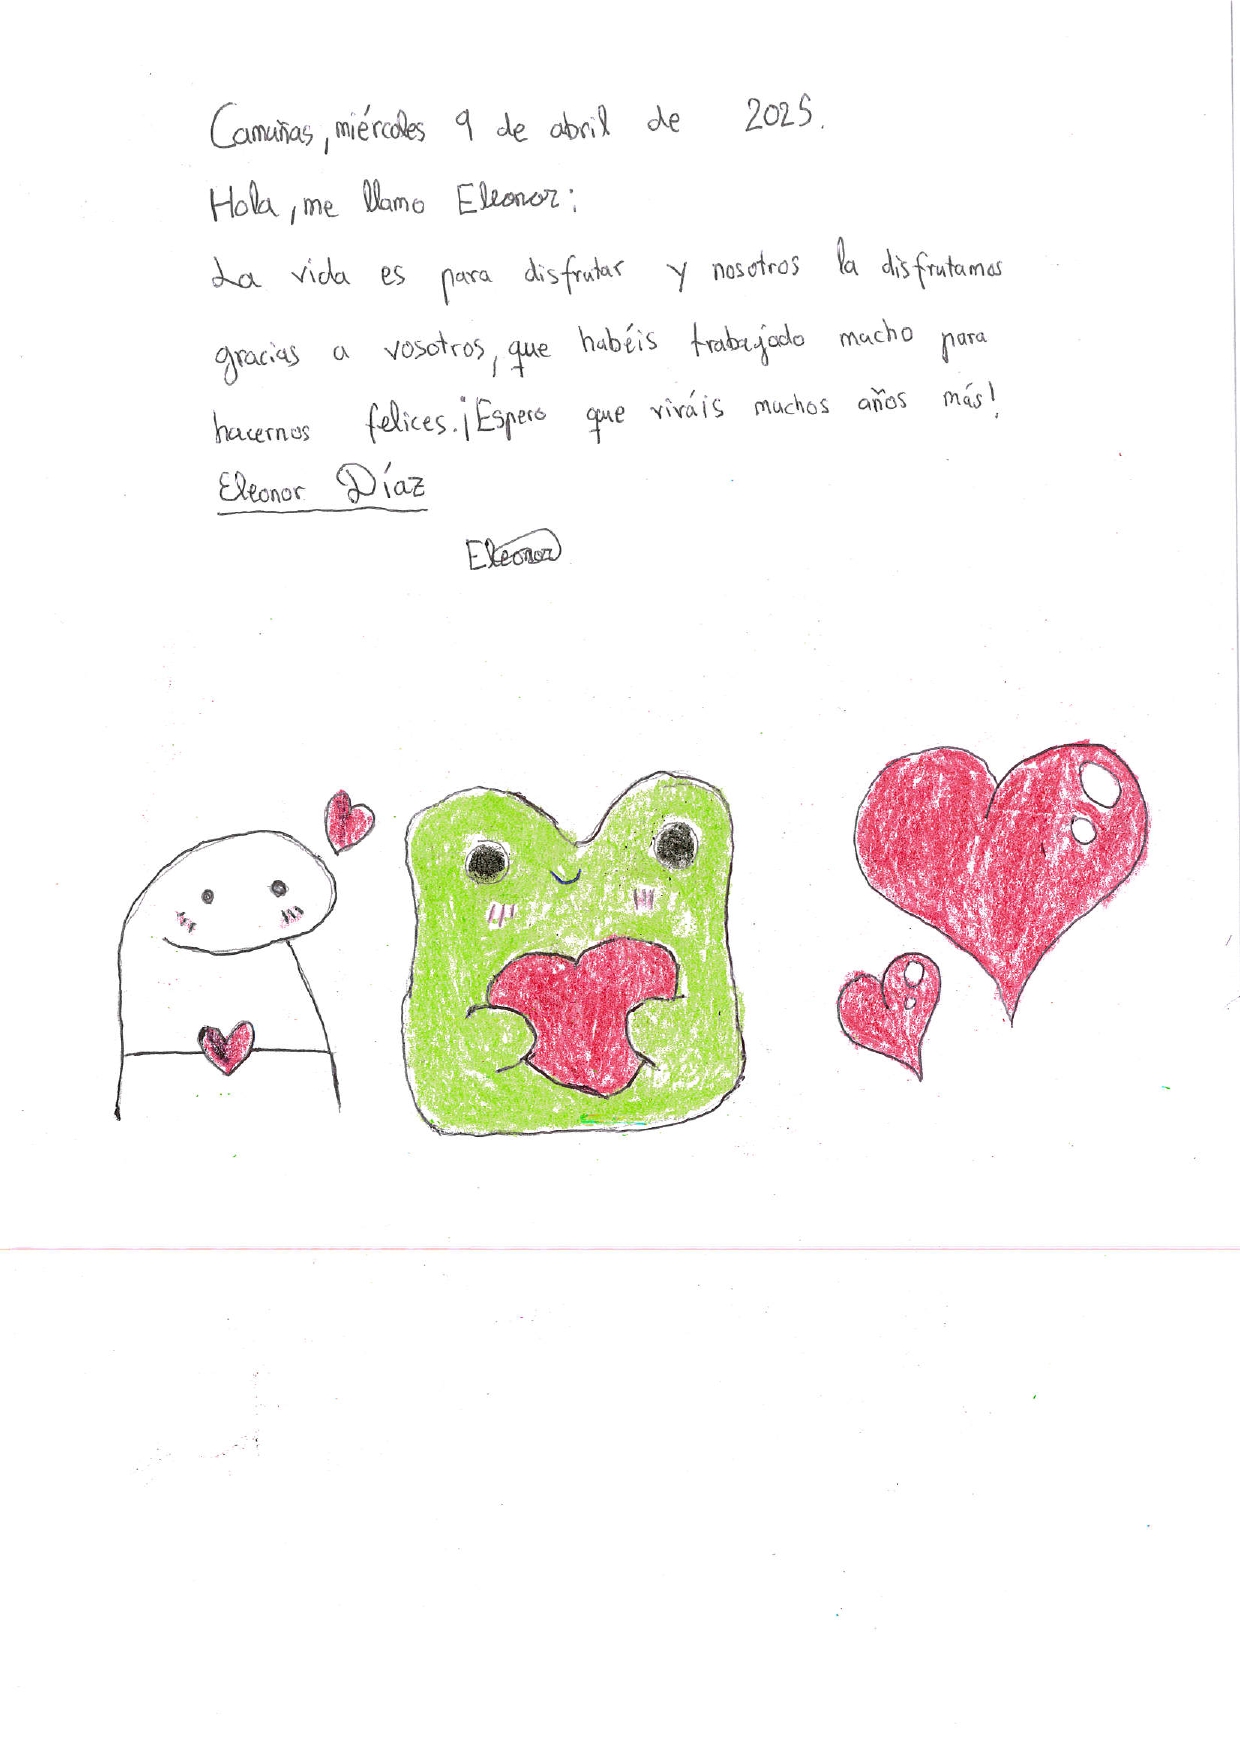 Camuñas, miércoles 9 de abril de 2025.
Hola, me llamo Eleonor:
La vida es para disfrutar y nosotros la disfrutamos
gracias a vosotros, que habéis trabajado mucho para
hacernos felices. ¡Espero que viváis muchos años más!
Eleonor Díaz
Eleonor